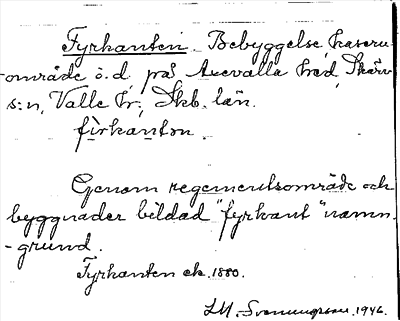 Fyrkanten. Bebyggelse, kasern-
område o. d. på Axevalla hed, Skärvs
s:n, Valle hd, Skb. län.
fìrkantən.
Genom regementsområde och
byggnader bildad "fyrkant" namn-
-grund.
Fyrkanten ek. 1880.
1946.